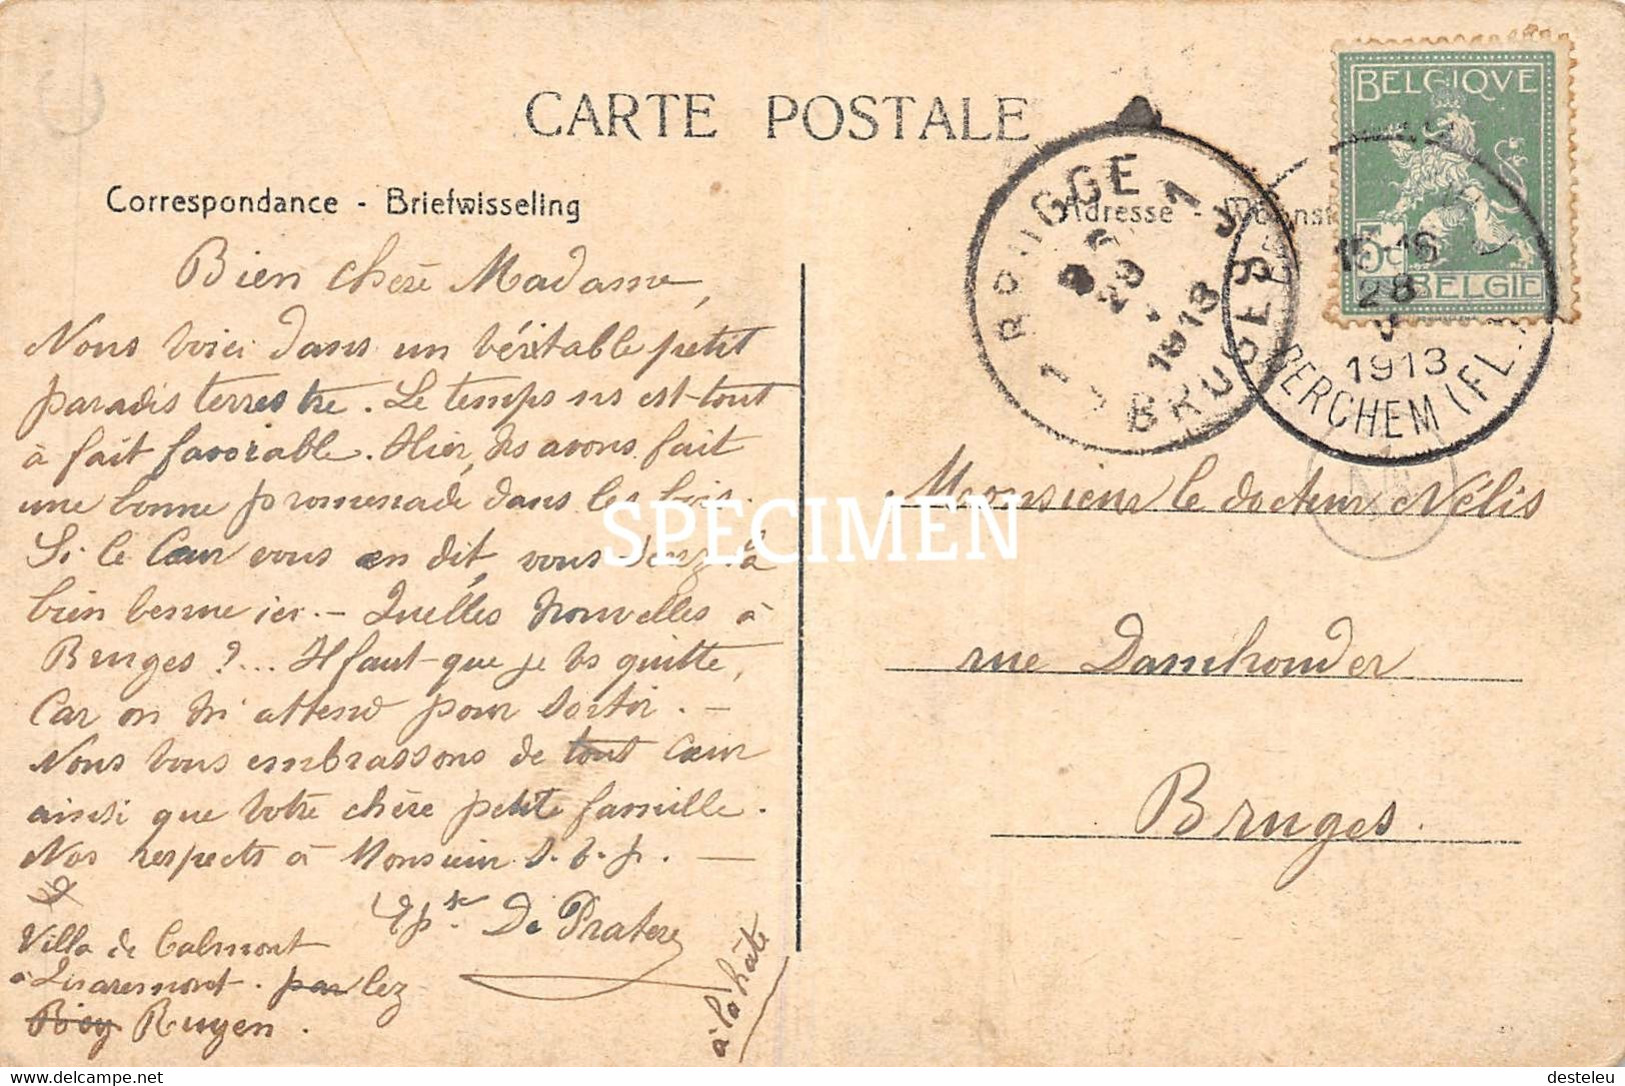 CARTE POSTALE
Correspondance - Briefwisseling
Adresse -
Bien chère Madame,
Nous voici dans un véritable petit
paradis terrestre. Le temps ns est tout
à fait favorable. Hier, ns avons fait
une bonne promenade dans les bois.
Si le Cœur vous en dit, vous serez la
bien venue ici. - Quelles nouvelles à
Bruges ?... Il faut que je vs quitte,
car on m'attend pour sortir. -
Nous vous embrassons de tout Cœur
ainsi que votre chère petite famille.
Nos respects à Monsieur s. v. p. -
De Pratere
Villa de Calmont
à Quaremont. par lez
Ruyen.
à la hâte
Monsieur le docteur Nélis
rue Damhouder
Bruges.
BELGIQVE
5c
BELGIE
BRUGGE
29
1913
BRUGES
15-16
28
1913
BERCHEM (FL.
SPECIMEN
www.delcampe.net
desteleu